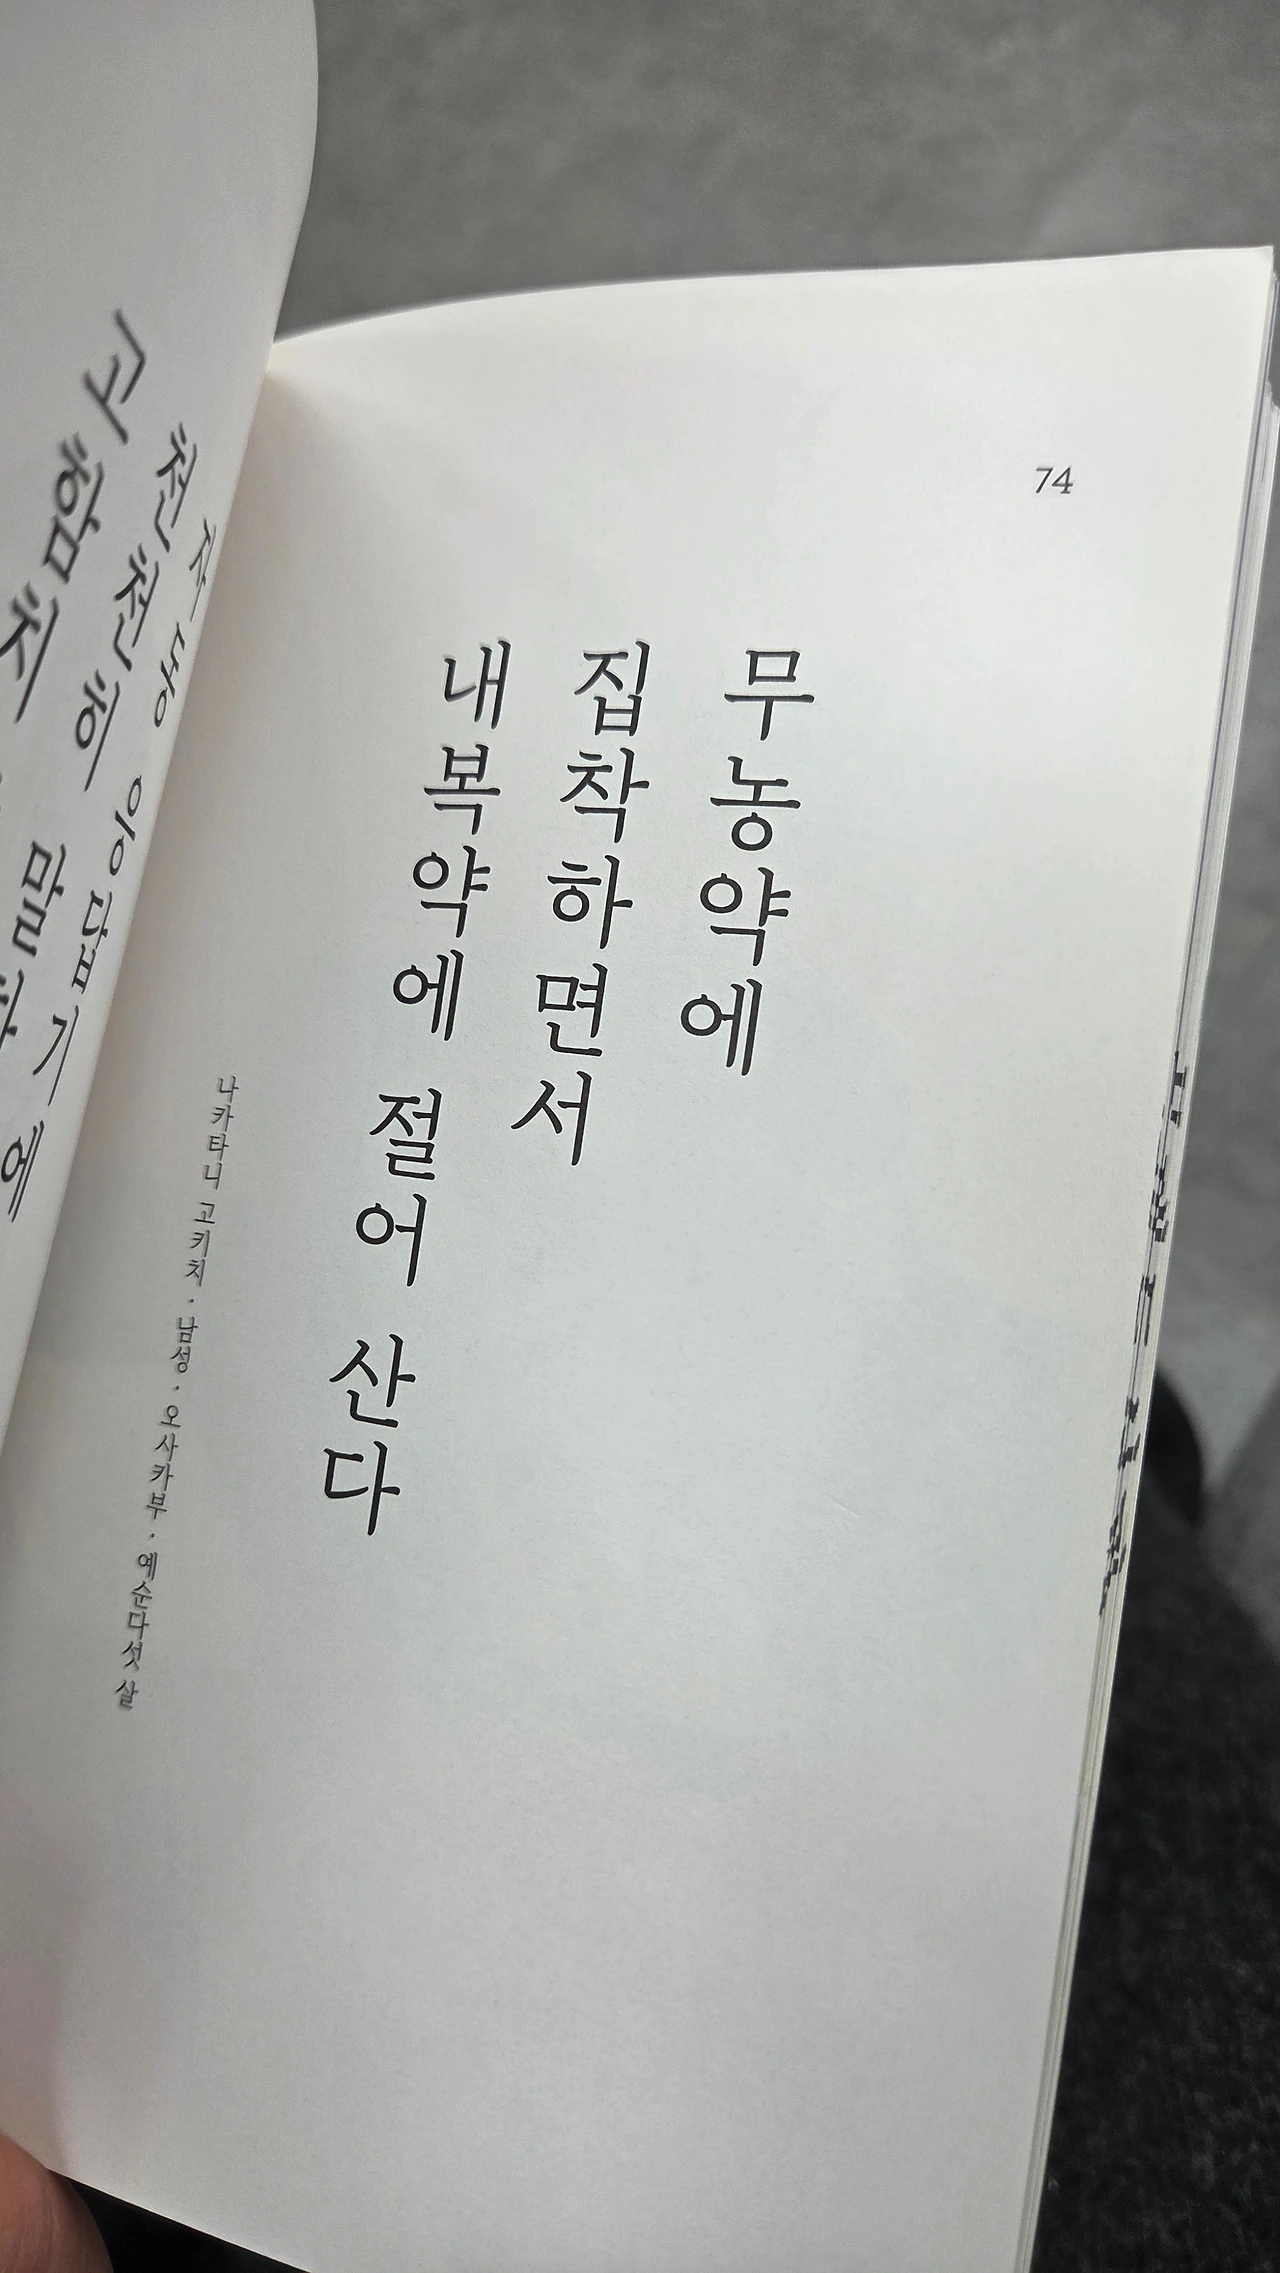 74
무농약에
집착하면서
내복약에 절어 산다
나카타니 고키치 · 남성 · 오사카부 · 예순다섯 살
천천히 응답기에